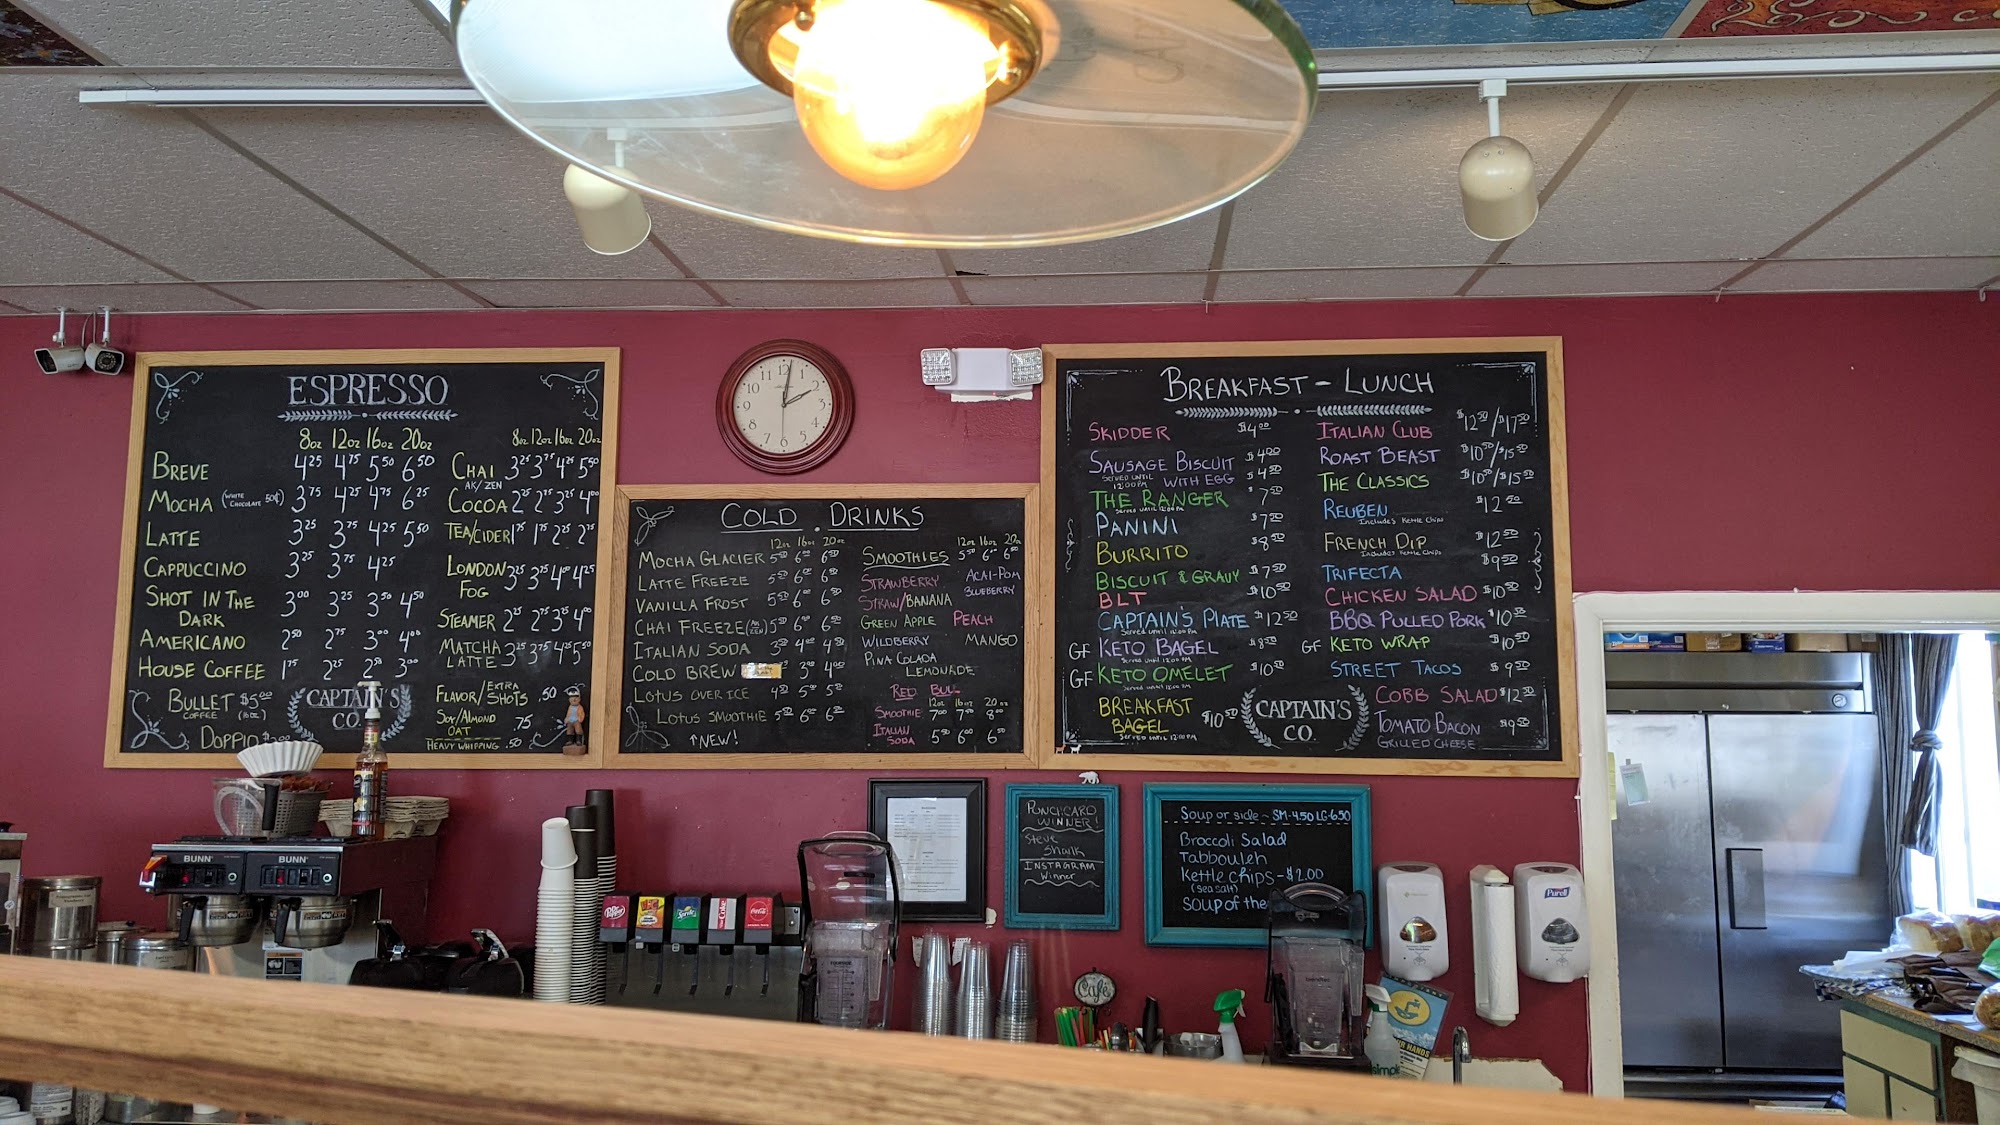 ESPRESSO
8oz 12oz 16oz 20oz
BREVE 4.25 4.75 5.50 6.50
MOCHA (WHITE CHOCOLATE 50¢) 3.75 4.25 4.75 6.25
LATTE 3.25 3.75 4.25 5.50
CAPPUCCINO 3.25 3.75 4.25
SHOT IN THE DARK 3.00 3.25 3.50 4.50
AMERICANO 2.50 2.75 3.00 4.00
HOUSE COFFEE 1.75 2.25 2.50 3.00
BULLET $5.00
COFFEE (16oz)
DOPPIO
CAPTAIN'S
CO.
8oz 12oz 16oz 20oz
CHAI 3.25 3.75 4.25 5.50
AK/ZEN
COCOA 2.25 2.75 3.25 4.00
TEA/CIDER 1.75 1.75 2.25 2.75
LONDON FOG 3.25 3.75 4.00 4.25
STEAMER 2.25 2.75 3.25 4.00
MATCHA LATTE 3.25 3.75 4.50 5.50
FLAVOR/EXTRA SHOTS .50
SOY/ALMOND OAT .75
HEAVY WHIPPING .50
12 1 2 3 4 5 6 7 8 9 10 11
COLD DRINKS
12oz 16oz 20oz
MOCHA GLACIER 5.50 6.00 6.50
LATTE FREEZE 5.50 6.00 6.50
VANILLA FROST 5.50 6.00 6.50
CHAI FREEZE (AK/ZEN) 5.50 6.00 6.50
ITALIAN SODA 3.50 4.00 4.50
COLD BREW 3.50 4.00
LOTUS OVER ICE 4.50 5.00 5.50
LOTUS SMOOTHIE 5.50 6.00 6.50
↑NEW!
12oz 16oz 20oz
SMOOTHIES 5.50 6.00 6.50
STRAWBERRY ACAI-POM
BLUEBERRY
STRAW/BANANA
GREEN APPLE PEACH
WILDBERRY MANGO
PINA COLADA
LEMONADE
RED BULL
12oz 16oz 20oz
SMOOTHIE 7.00 7.50 8.00
ITALIAN SODA 5.50 6.00 6.50
BREAKFAST - LUNCH
SKIDDER $4.00
SAUSAGE BISCUIT $4.00
SERVED UNTIL 12:00PM WITH EGG $4.50
THE RANGER $7.50
Served until 12:00pm
PANINI $7.50
BURRITO $8.50
BISCUIT & GRAVY $7.50
BLT $10.50
CAPTAIN'S PLATE $12.50
Served until 12:00pm
GF KETO BAGEL $8.50
Served until 12:00pm
GF KETO OMELET $10.50
Served until 12:00pm
BREAKFAST BAGEL $10.50
SERVED UNTIL 12:00PM
ITALIAN CLUB $12.50/$17.50
ROAST BEAST $10.50/$15.50
THE CLASSICS $10.50/$15.50
REUBEN $12.50
Includes Kettle Chips
FRENCH DIP $12.50
Includes Kettle Chips
TRIFECTA $9.50
CHICKEN SALAD $10.50
BBQ PULLED PORK $10.50
GF KETO WRAP $10.50
STREET TACOS $9.50
COBB SALAD $12.50
TOMATO BACON $9.50
GRILLED CHEESE
CAPTAIN'S
CO.
PUNCHCARD
WINNER!
Steve
Shank
INSTAGRAM
Winner
Soup or side ~ SM-4.50 LG-6.50
Broccoli Salad
Tabbouleh
Kettle chips - $2.00
(sea salt)
Soup of the
BUNN
BUNN
Dr Pepper
Sprite
Diet Coke
Coca-Cola
Café
Purell
simple